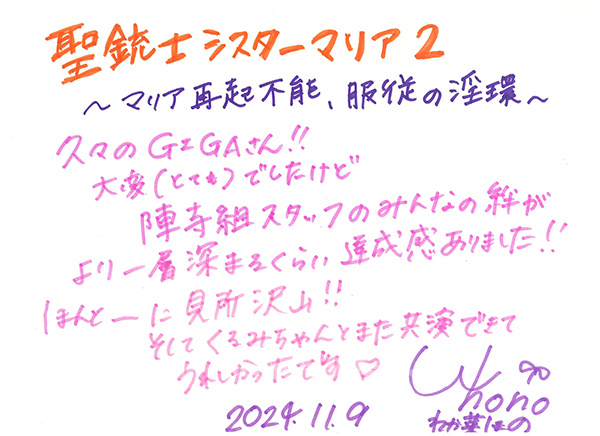 聖銃士シスターマリア2
~マリア再起不能、服従の淫環~
久々のGIGAさん!!
大変(とても)でしたけど
陣寺組スタッフのみんなの絆が
より一層深まるくらい達成感ありました!!
ほんとーに見所沢山!!
そしてくるみちゃんとまた共演できて
うれしかったです♡
nono
わか葉ほの
2024.11.9